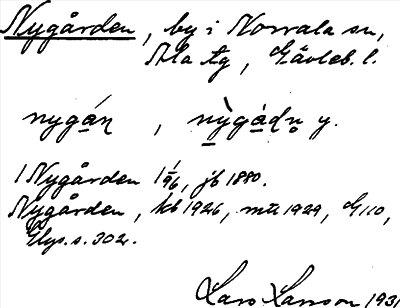 Nygården, by i Norrala sn,
Ala tg, Gävleb. l.
nygá̱ṇ, nỳ̱gá̱dṇ y.
1 Nygården 1/96, jb 1880.
Nygården, kb 1926, mtl 1929, G110,
s. 302.
Lars Larsson 1931